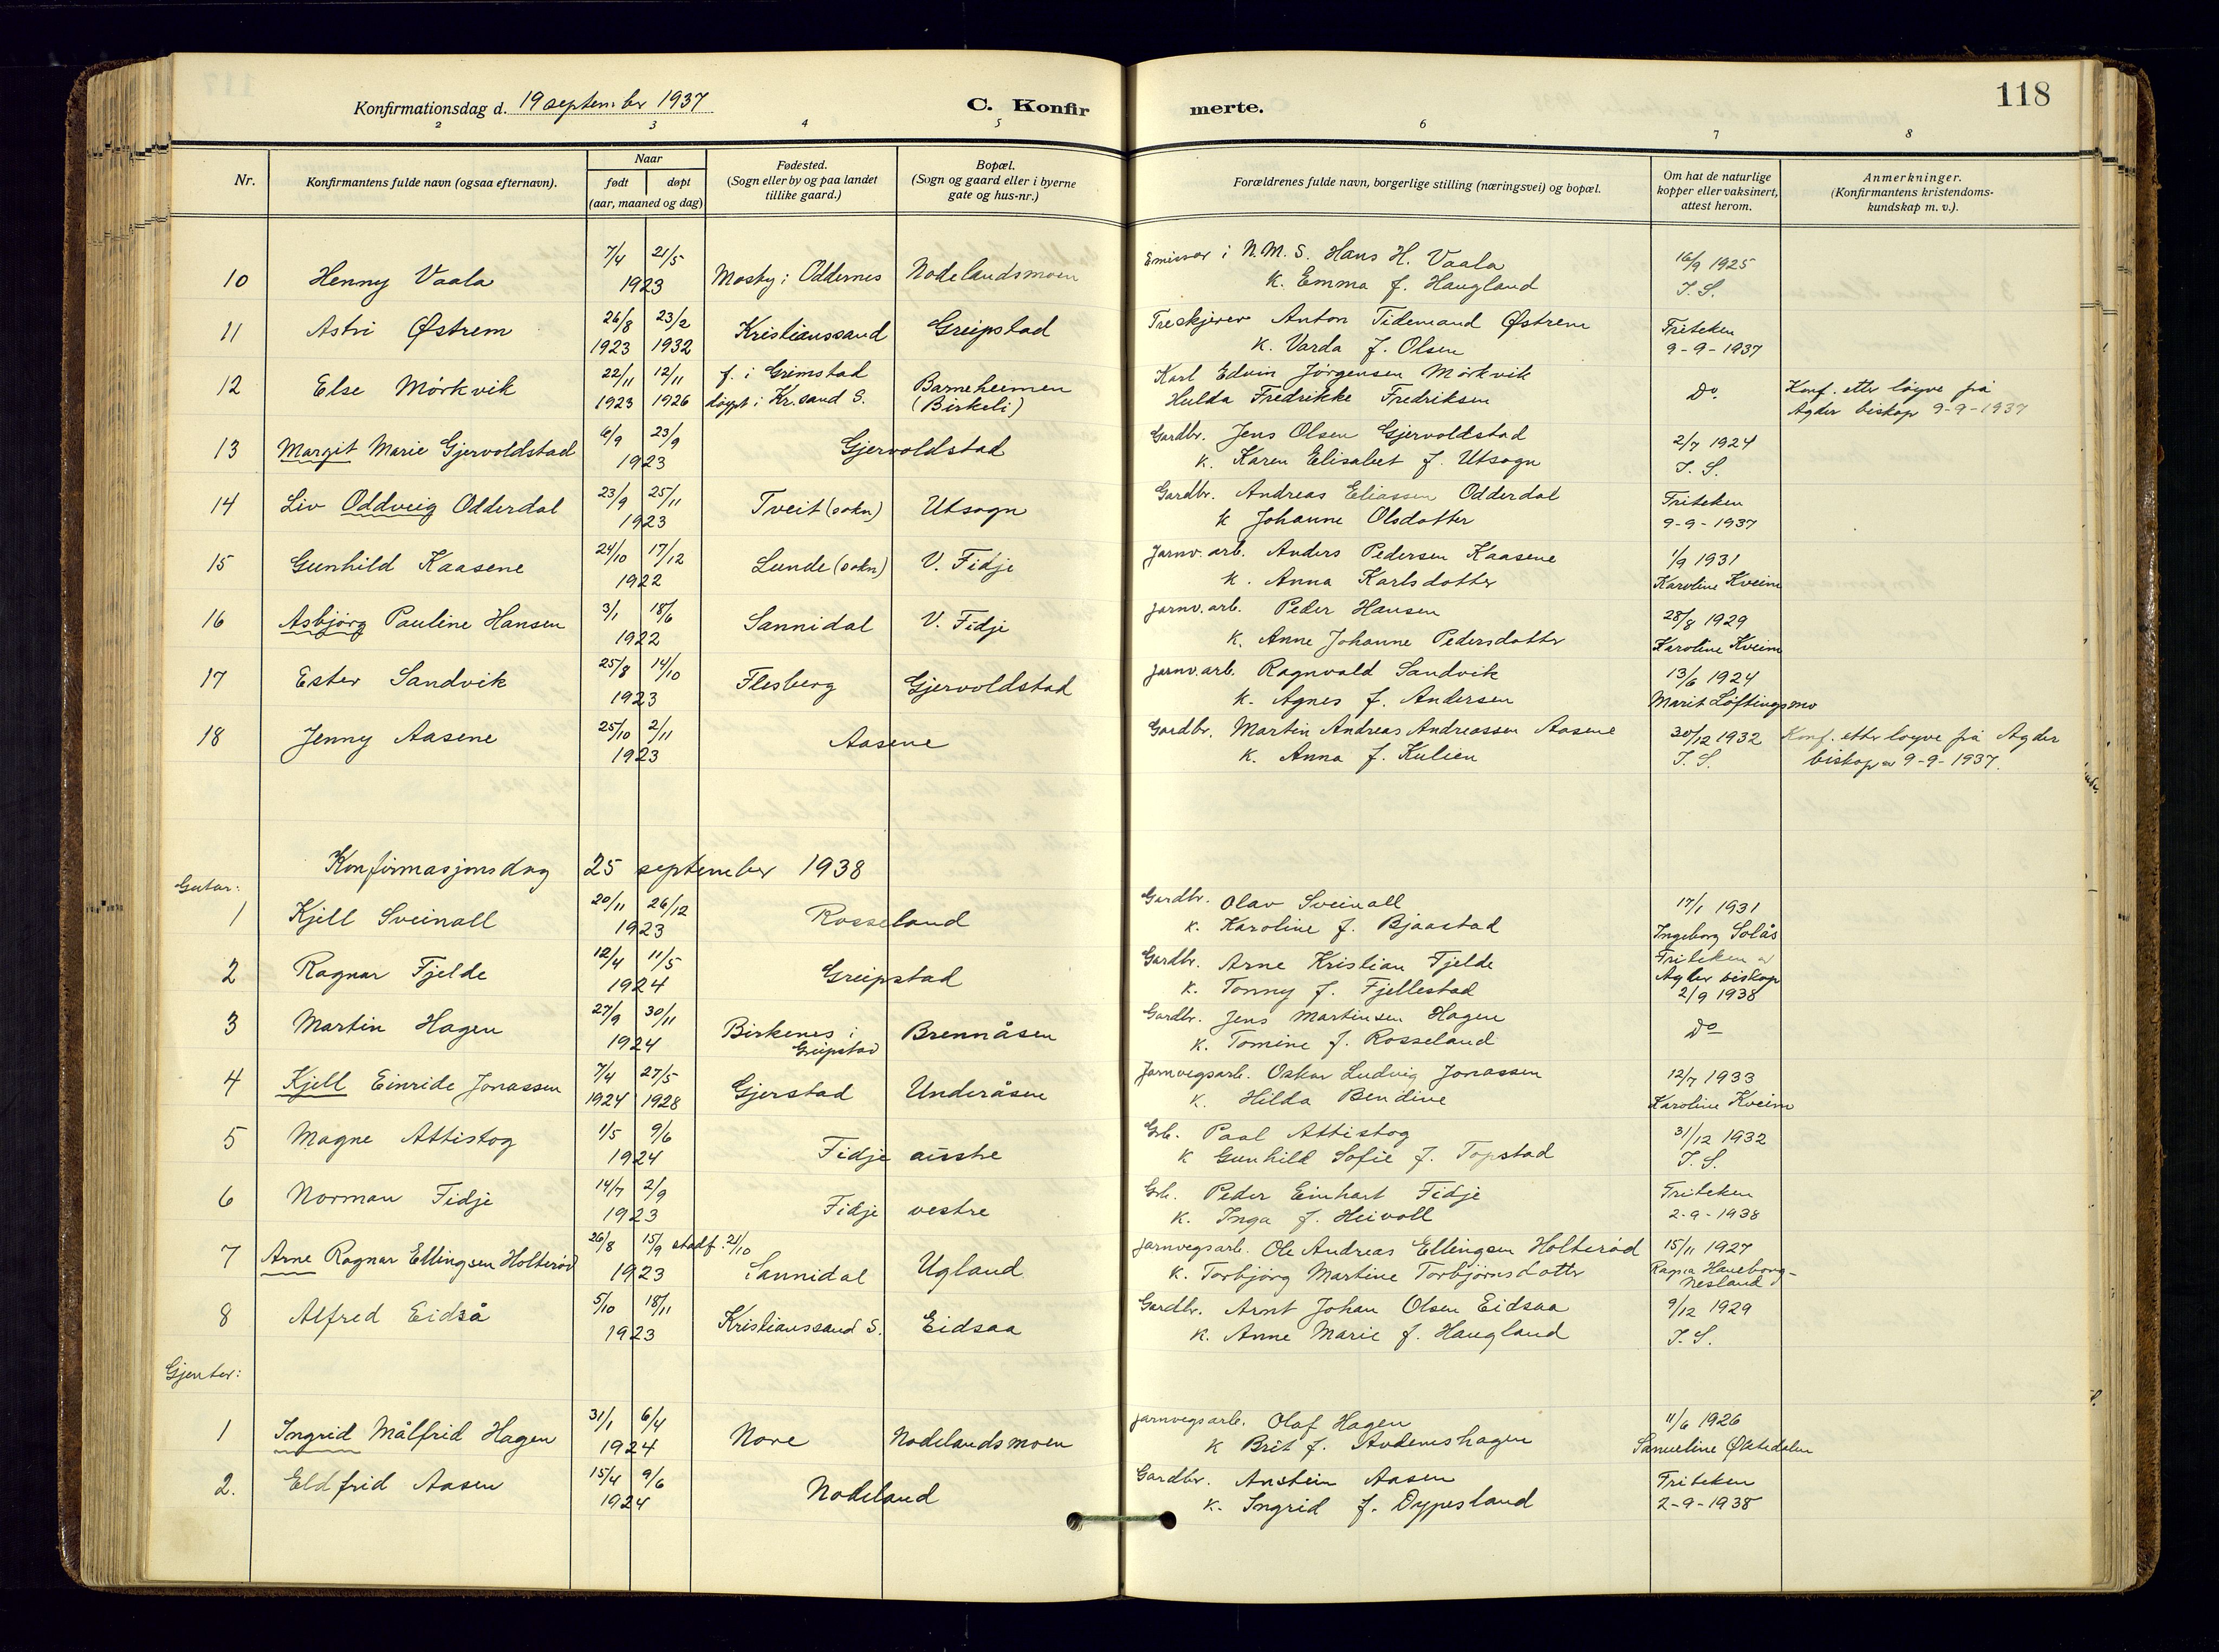 118
Konfirmationsdag d. 19 september 1937
C. Konfirmerte.
2 3 4 5 6 7 8
Nr.
Konfirmantens fulde navn (ogsaa efternavn).
Naar
født døpt
(aar, maaned og dag)
Fødested.
(Sogn eller by og paa landet
tillike gaard.)
Bopæl.
(Sogn og gaard eller i byerne
gate og hus-nr.)
Forældrenes fulde navn, borgerlige stilling (næringsvei) og bopæl.
Om hat de naturlige
kopper eller vaksinert,
attest herom.
Anmerkninger.
(Konfirmantens kristendoms-
kundskap m. v.).
7/4 21/5 Emissær i N.M.S. Hans H. Vaala 16/9 1925
10 Henny Vaala 1923 Mosby i Oddernes Nodelandsmoen K. Emma f. Haugland T. S.
26/8 23/2 Treskjærer Anton Tidemand Østrem Friteken
11 Astri Østrem 1923 1932 Kristianssand Greipstad K. Varda f. Olsen 9-9-1937
22/11 12/11 f. i Grimstad Barneheimen Karl Edvin Jörgensen Mörkvik Do. Konf. etter löyve frå
12 Else Mörkvik 1923 1926 döypt i Kr.sand S. (Birkeli) Hulda Fredrikke Fredriksen Agder biskop 9-9-1937
6/9 23/9 Gardbr. Jens Olsen Gjervoldstad 2/7 1924
13 Margit Marie Gjervoldstad 1923 Gjervoldstad K. Karen Elisabet f. Utsogn T. S.
23/9 25/11 Gardbr. Andreas Eliassen Odderdal Friteken
14 Liv Oddveig Odderdal 1923 Tveit (sokn) Utsogn K Johanne Olsdotter 9-9-1937
24/10 17/12 Jarnv. arb. Anders Pedersen Kaasene 1/9 1931
15 Gunhild Kaasene 1922 Lunde (sokn) V. Fidje K. Anna Karlsdotter Karoline Kveim
3/1 18/6 jarnv. arb. Peder Hansen 28/8 1929
16 Asbjörg Pauline Hansen 1922 Sannidal V. Fidje K. Anne Johanne Pedersdotter Karoline Kveim
25/8 14/10 jarnv. arb. Ragnvald Sandvik 13/6 1924
17 Ester Sandvik 1923 Flesberg Gjervoldstad K. Agnes f. Andersen Marit Löftingsmo
25/10 2/11 Gardbr. Martin Andreas Andreassen Aasene 30/12 1932 Konf. etter löyve frå Agder
18 Jenny Aasene 1923 Aasene K. Anna f. Kulien T. S. biskop 9-9-1937.
Konfirmasjonsdag 25 september 1938
Gutar:
20/11 26/12 Gardbr. Olav Sveinall 17/1 1931
1 Kjell Sveinall 1923 Rosseland K. Karoline f. Bjaastad Ingeborg Solås
12/4 11/5 Gardbr. Arne Kristian Fjelde Friteken av
2 Ragnar Fjelde 1924 Greipstad K. Tonny f. Fjellestad Agder biskop
2/9 1938
27/9 30/11 Gardbr. Jens Martinsen Hagen
3 Martin Hagen 1924 Birkenes i Greipstad Brennåsen K. Tomine f. Rosseland Do
7/4 27/5 Jarnvegsarb. Oskar Ludvig Jonassen 12/7 1933
4 Kjell Einride Jonassen 1924 1928 Gjerstad Underåsen K. Hilda Bendine Karoline Kveim
1/5 9/6 Gb. Paal Attistog 31/12 1932
5 Magne Attistog 1924 Fidje austre K Gunhild Sofie f. Topstad T. S.
14/7 2/9 Gb. Peder Einhart Fidje Friteken
6 Norman Fidje 1923 Fidje vestre K. Inga f. Heivoll 2-9-1938
26/8 15/9 stadf. 21/10 jarnvegsarb. Ole Andreas Ellingsen Holteröd 15/11 1927
7 Arne Ragnar Ellingsen Holteröd 1923 Sannidal Ugland K. Torbjörg Martine Torbjörnsdotter Ragna Haneborg-
Nesland
5/10 18/11 Gardbr. Arnt Johan Olsen Eidsaa 9/12 1929
8 Alfred Eidså 1923 Kristianssand S. Eidsaa K. Anne Marie f. Haugland T. S.
Gjenter:
31/1 6/4 jarnvegsarb. Olaf Hagen 11/6 1926
1 Ingrid Målfrid Hagen 1924 Nore Nodelandsmoen K Brit f. Avdemshagen
15/4 9/6 Gardbr. Anstein Aasen Friteken
2. Eldfrid Aasen 1924 Nodeland K. Ingrid f. Dypesland 2-9-1938